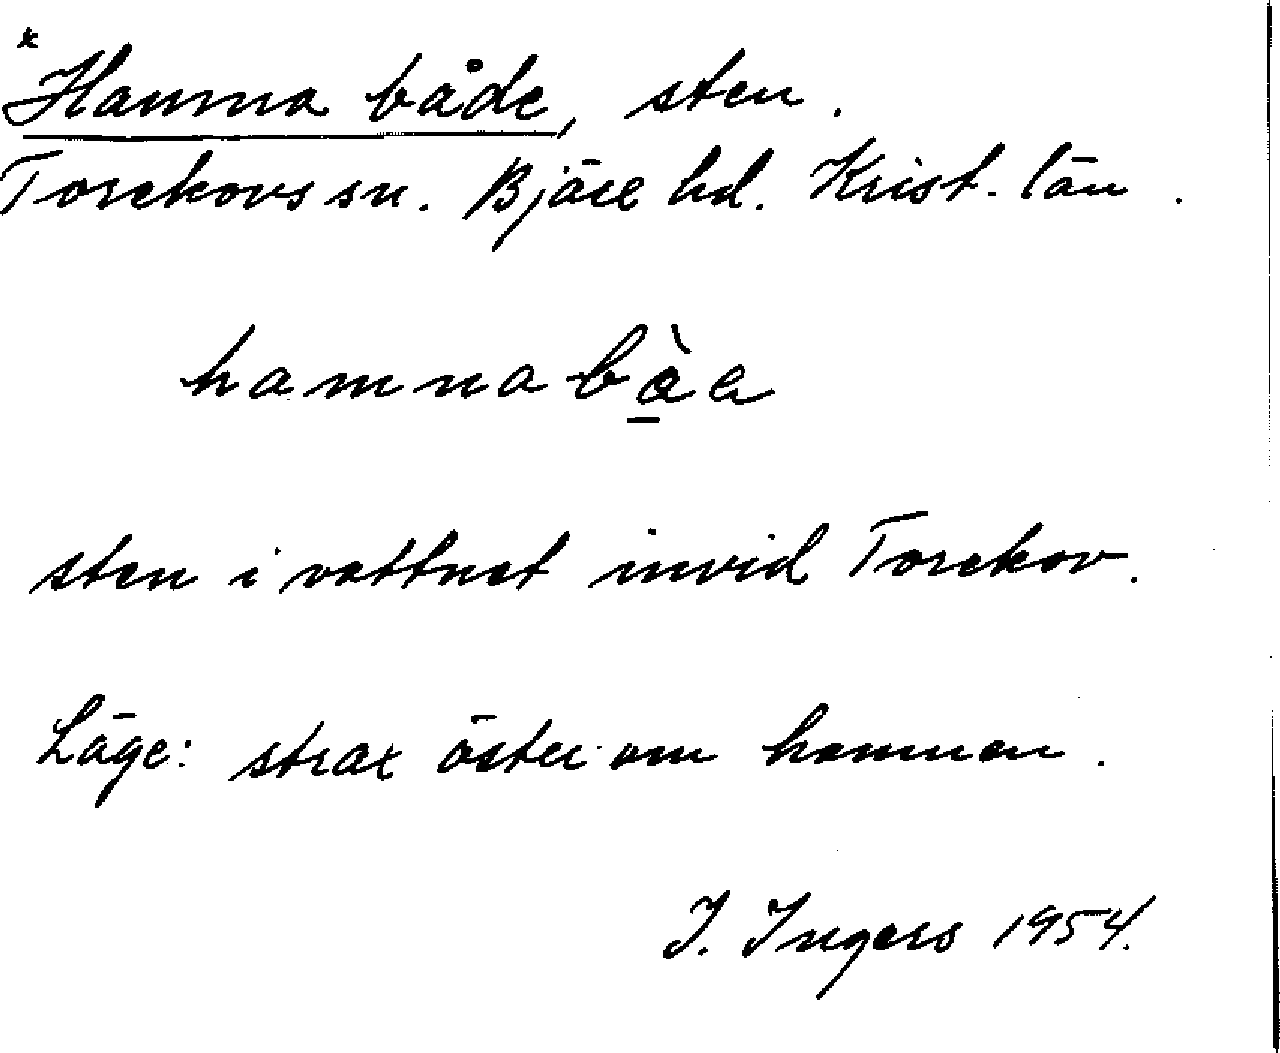 *Hamna både, sten.
Torekovs sn. Bjäre hd. Krist. län.
hamnabàa
sten i vattnet invid Torekov.
Läge: strax öster om hamnen.
I. Ingers 1954.